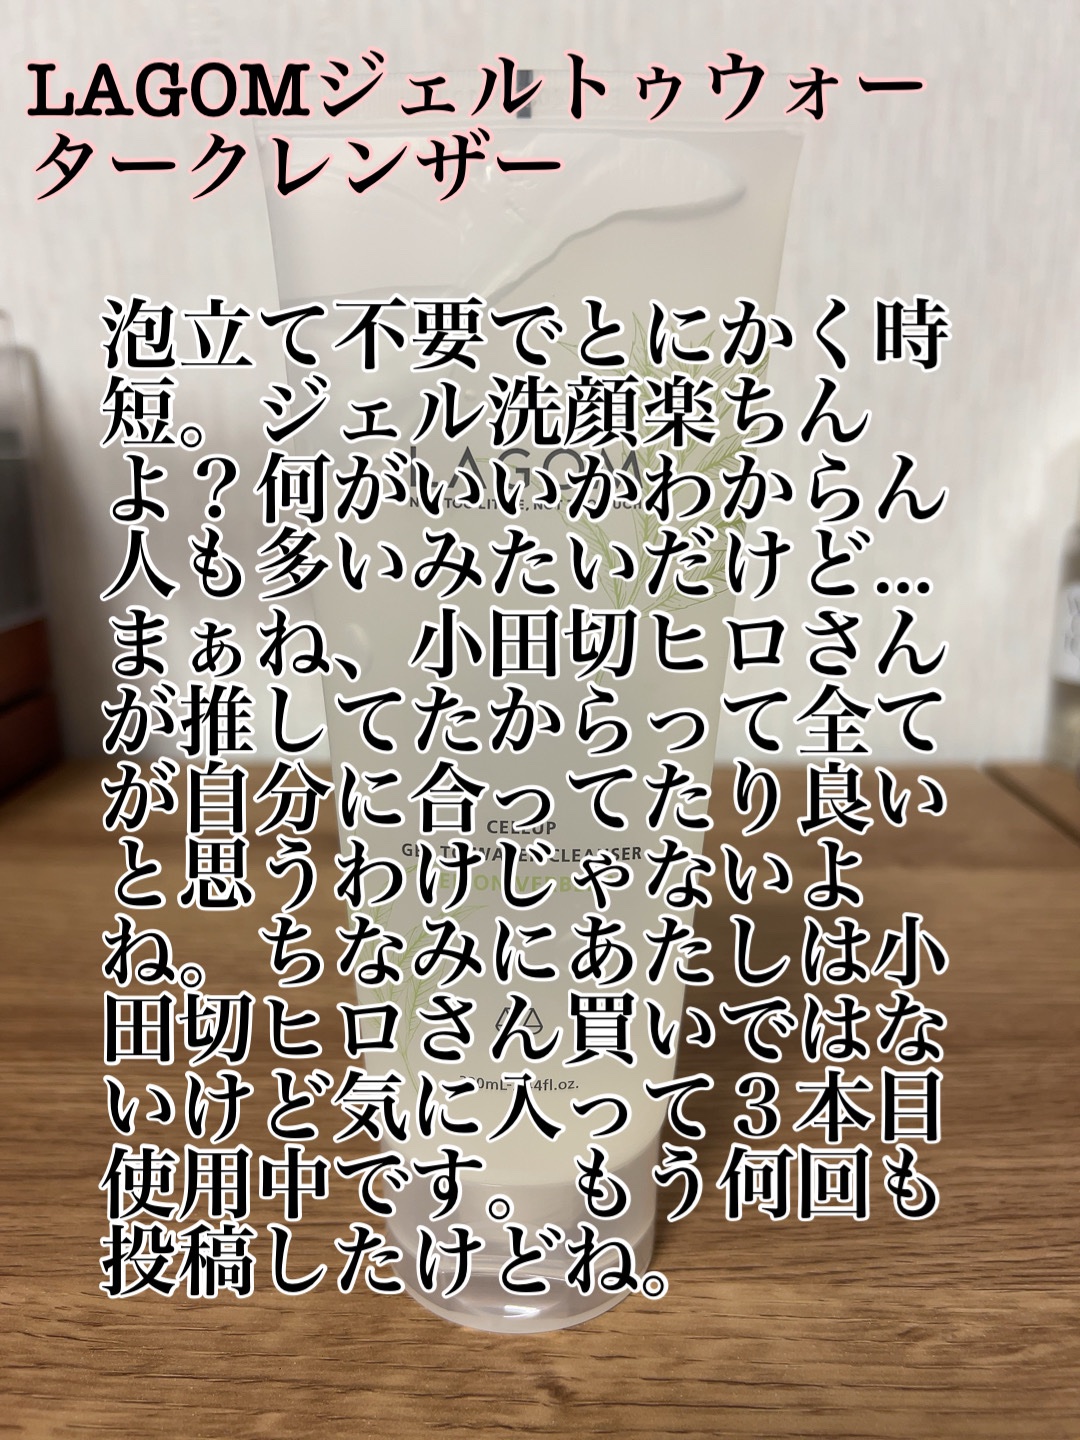 LAGOMジェルトゥウォー
タークレンザー
泡立て不要でとにかく時
短。ジェル洗顔楽ちん
よ？何がいいかわからん
人も多いみたいだけど...
まぁね、小田切ヒロさん
が推してたからって全て
が自分に合ってたり良い
と思うわけじゃないよ
ね。ちなみにあたしは小
田切ヒロさん買いではな
いけど気に入って３本目
使用中です。もう何回も
投稿したけどね。
LAGOM
CELLUP